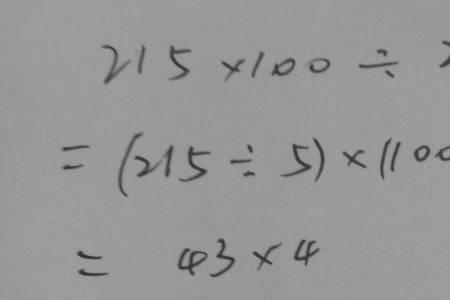 215 × 100 ÷
= (215 ÷ 5) × (100
= 43 × 4